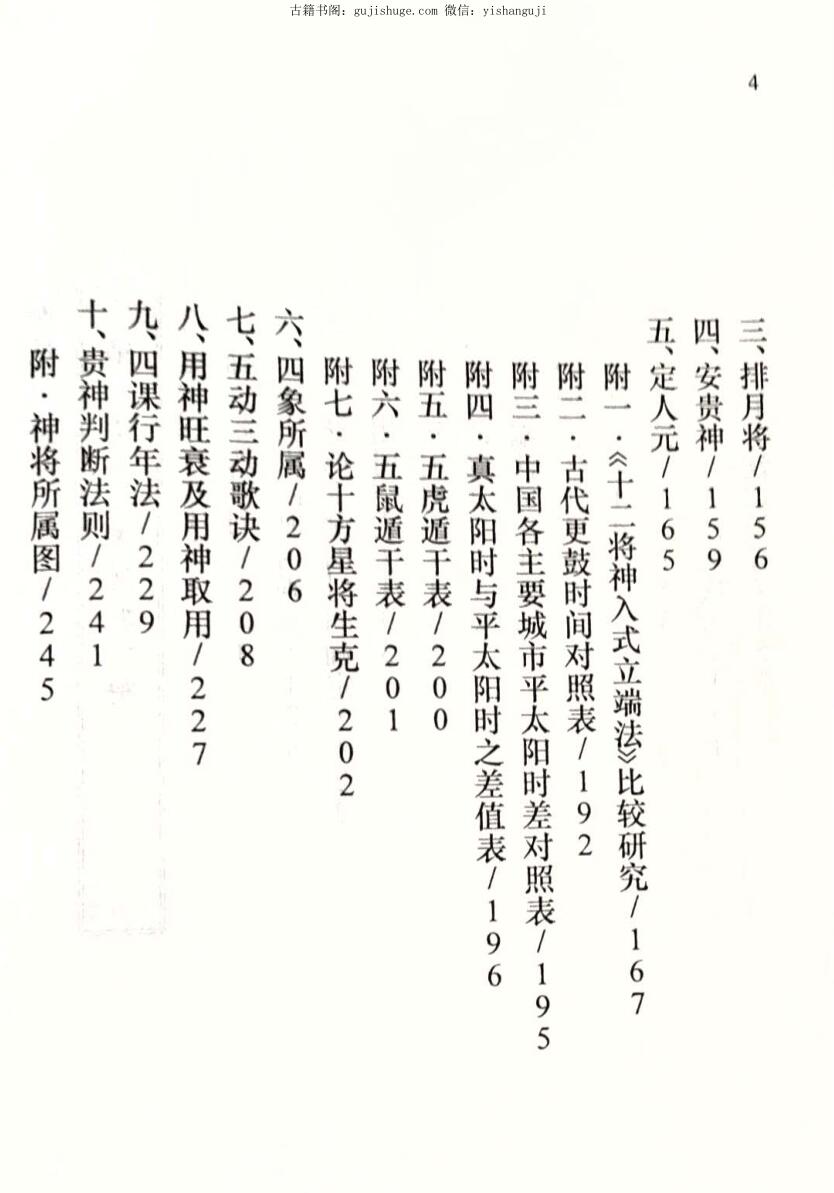 古籍书阁：gujishuge.com 微信：yishanguji
4
三、排月将/156
四、安贵神/159
五、定人元/165
附一·《十二将神入式立端法》比较研究/167
附二·古代更鼓时间对照表/192
附三·中国各主要城市平太阳时差对照表/195
附四·真太阳时与平太阳时之差值表/196
附五·五虎遁干表/200
附六·五鼠遁干表/201
附七·论十方星将生克/202
六、四象所属/206
七、五动三动歌诀/208
八、用神旺衰及用神取用/227
九、四课行年法/229
十、贵神判断法则/241
附·神将所属图/245